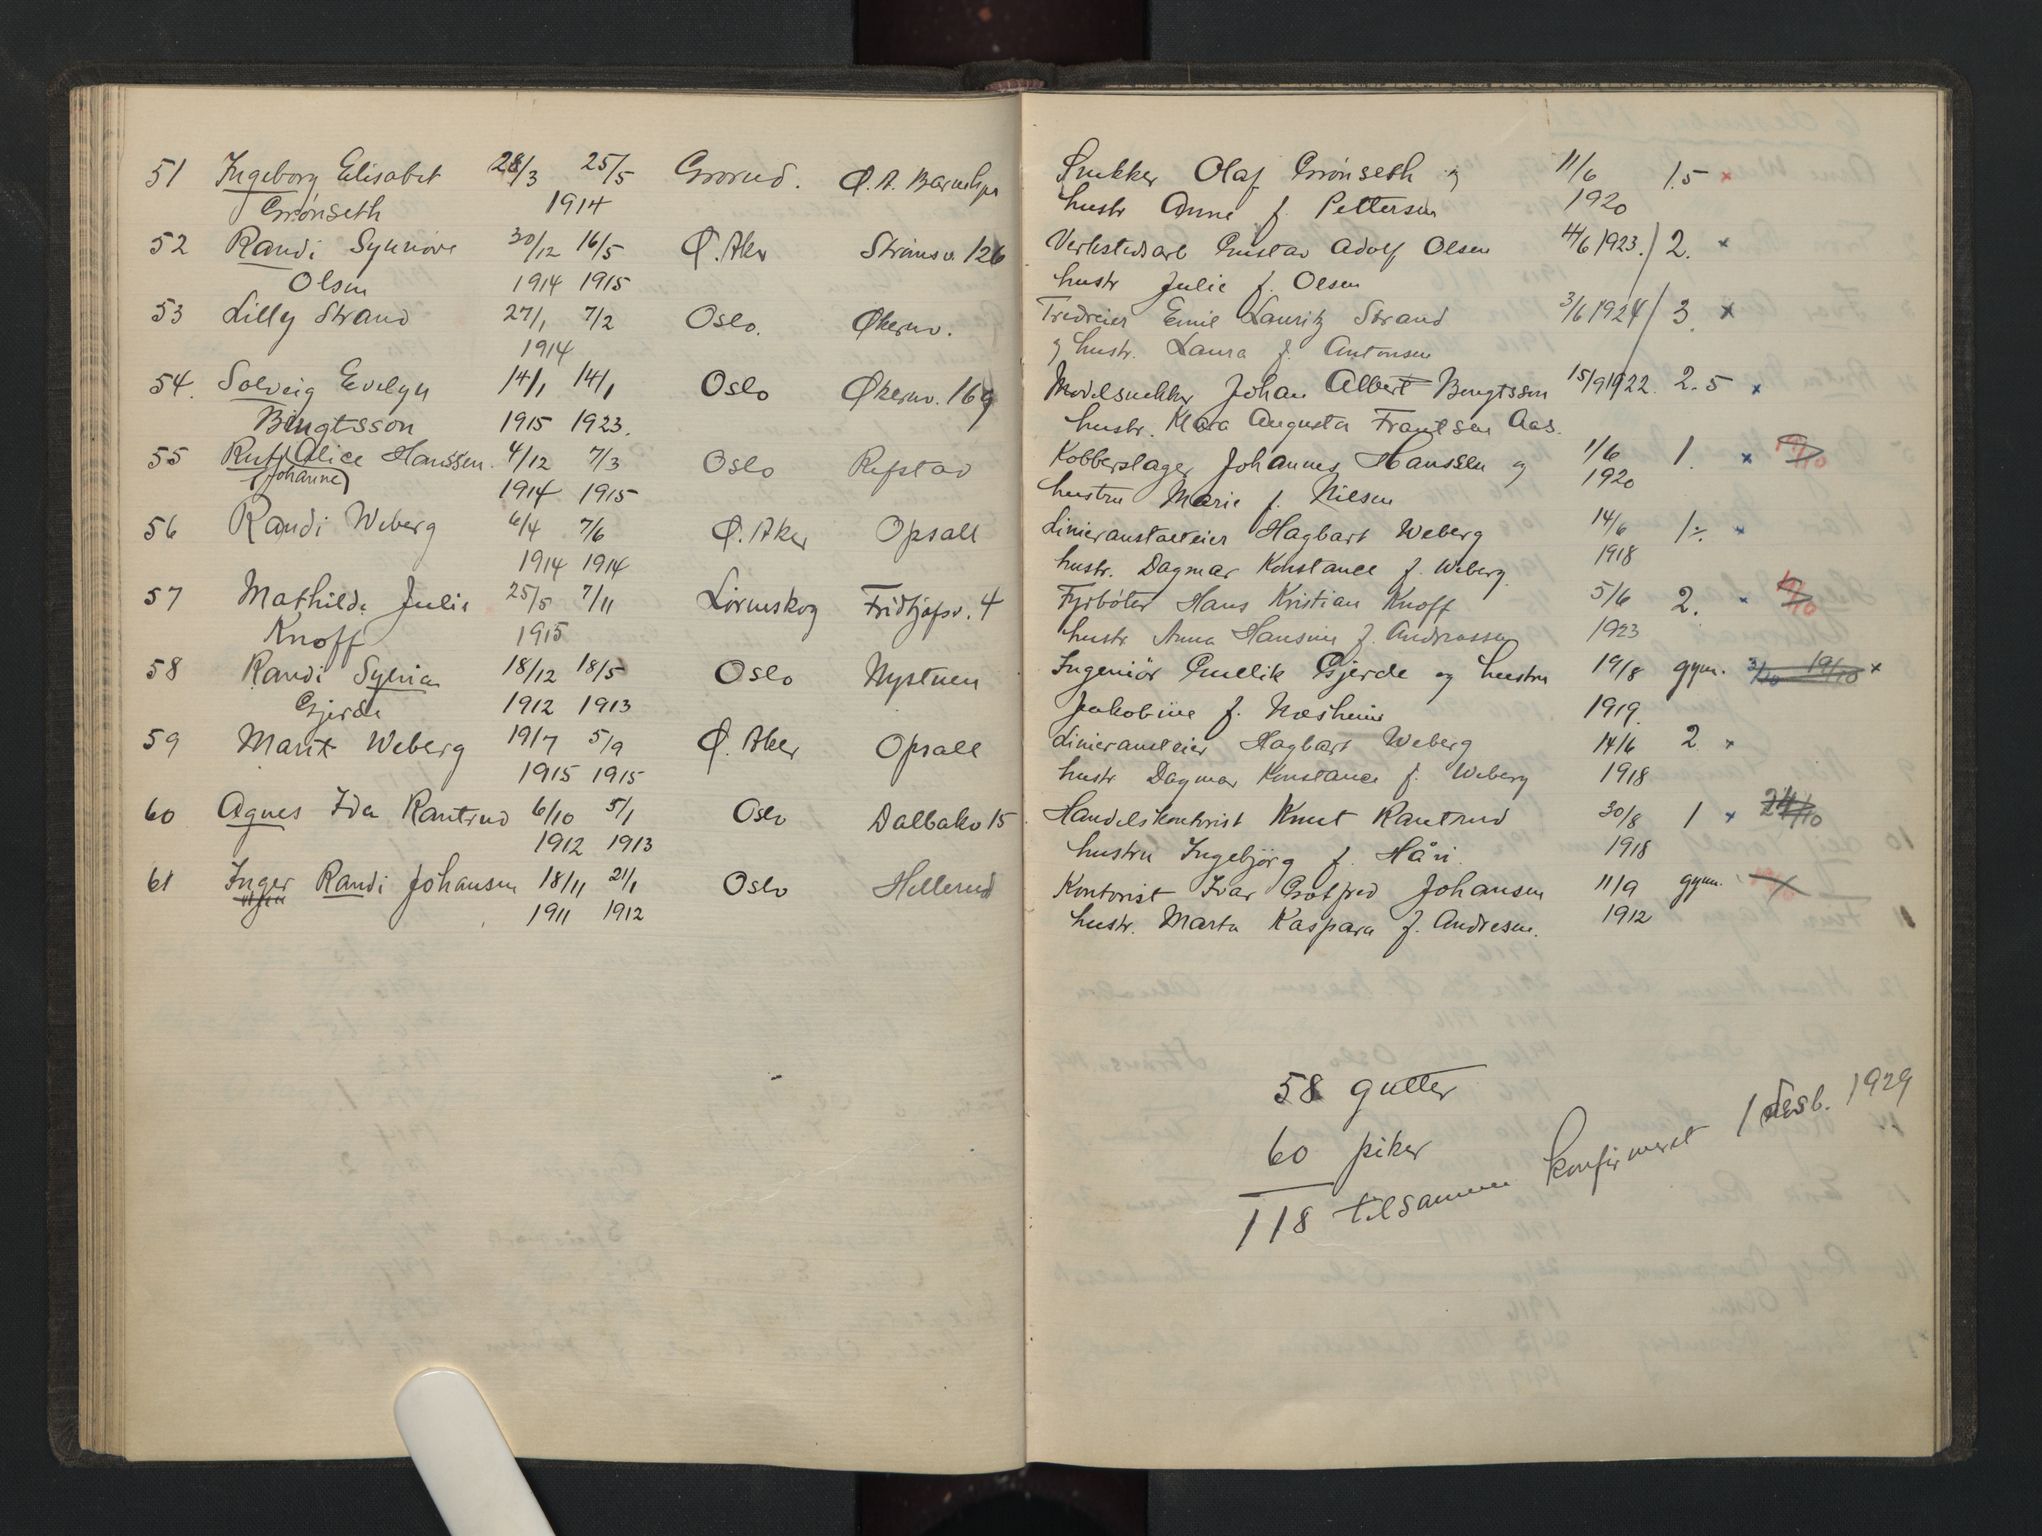 51 Ingeborg Elisabet 28/3 25/5 Grorud. Ø.A. Snekker Olaf Grønseth og 11/6 1.5 ×
Grønseth 1914 hustr Anne f. Pettersen 1920
52 Randi Synnøve 30/12 16/5 Ø. Aker Strømsv. 126 Verkstedsarb Gustav Adolf Olsen 4/6 1923. / 2. ×
Olsen 1914 1915 hustr Julie f. Olsen
53 Lilly Strand 27/1 7/2 Oslo. Økernv. Emil Lauritz Strand 3/6 1924 / 3. ×
1914 og hustr. Laura f. Antonsen
54. Solveig Evelyn 14/1 14/1 Oslo Økernv. 169 Modelsnekker Johan Albert Bengtsson 15/9 1922. 2.5 ×
Bengtsson 1915 1923. hustr. Klara Augusta Frantsen Aas.
55 Ruth Alice Hanssen. 4/12 7/3 Oslo Refstad Kobberslager Johannes Hanssen og 1/6 1. ×
(Johanne) 1914 1915 hustru Marie f. Nilsen 1920
56 Randi Weberg 6/4 7/6 Ø. Aker Opsall Linieranstalteier Hagbart Weberg 14/6 1÷. ×
1914 1914 hustr. Dagmar Konstance f. Weberg 1918
57 Mathilde Julie 25/5 7/11 Lørenskog Fridtjofsv. 4 Fyrbøter Hans Kristian Knoff 5/6 2. ×
Knoff 1915 hustr Anna Hansine f. Andreassen 1923
58 Randi Sylvia 18/12 18/5 Oslo Nystuen Ingeniør Gjerde og hustru 19/8 gym. 3/10 19/10 ×
Gjerde 1912 1913 Jakobine f. Næsheim 1919.
59 Marit Weberg 19/7 5/9 Ø. Aker Opsall Linieransteier Hagbart Weberg 14/6 2 ×
1915 1915 hustr Dagmar Konstance f. Weberg 1918
60 Agnes Ida Rantrud 6/10 5/1 Oslo Dalbakv 15 Handelskontorist Knut Rantrud 30/8 1 × 24/10
1912 1913 hustru Ingebjørg f. Håvi. 1918
61 Inger Randi Johansen 18/11 21/1 Oslo Hellerud Kontorist Ivar Gotfred Johansen 11/9 gym.
1911 1912 hustr. Marta Kaspara f. Andresen. 1912
58 gutter
60 piker
118 tilsammen konfirmeret 1 desb. 1929